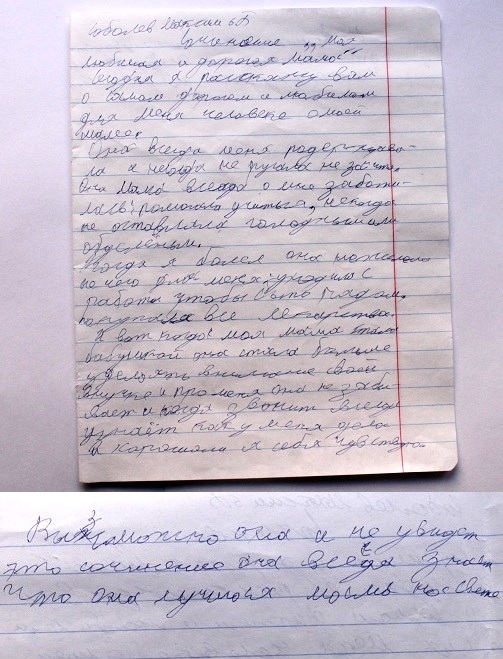 Соболев Максим 6Б
Сочинение „Моя
любимая и дорогая мама"
Сегодня я расскажу вам
о самом дорогом и любимом
для меня человеке о моей
маме.
Она всегда меня
ла и некогда не ругала не
Она мама всегда о мне заботи-
лась; помогала учиться, некогда
не оставляла голодным или
Когда я болел она
не чего для меня: уходила с
работы чтобы быть рядом,
покупала все лекарства.
А вот когда моя мама стала
бабушкой она стала больше
уделять внимание своей
внучке и про меня она не забы-
вает и когда звонит всегда
узнаёт как у меня дела
и хорошо ли я себя чувствую.
она и не увидет
это сочинение она всегда знает
что она лучшая мама на свете